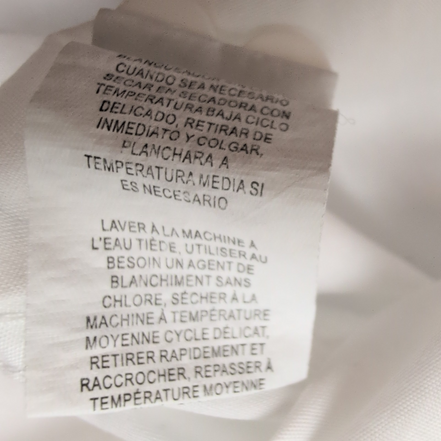 BLANQUEADOR
CUANDO SEA NECESARIO
SECAR EN SECADORA CON
TEMPERATURA BAJA CICLO
DELICADO, RETIRAR DE
INMEDIATO Y COLGAR,
PLANCHAR A
TEMPERATURA MEDIA SI
ES NECESARIO
LAVER À LA MACHINE À
L'EAU TIÈDE, UTILISER AU
BESOIN UN AGENT DE
BLANCHIMENT SANS
CHLORE, SÉCHER À LA
MACHINE À TEMPÉRATURE
MOYENNE CYCLE DÉLICAT,
RETIRER RAPIDEMENT ET
RACCROCHER, REPASSER À
TEMPÉRATURE MOYENNE